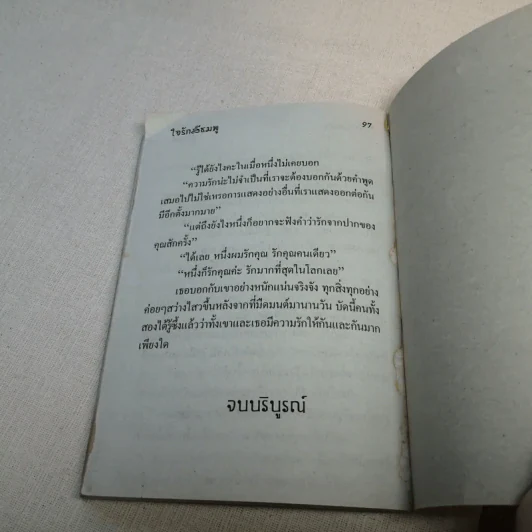 ใจรักสีชมพู 97
“รู้ได้ยังไงคะในเมื่อหนึ่งไม่เคยบอก
“ความรักน่ะไม่จำเป็นที่เราจะต้องบอกกันด้วยคำพูด
เสมอไปไม่ใช่เหรอการแสดงอย่างอื่นที่เราแสดงออกต่อกัน
มีอีกตั้งมากมาย”
“แต่ถึงยังไงหนึ่งก็อยากจะฟังคำว่ารักจากปากของ
คุณสักครั้ง”
“ได้เลย หนึ่งผมรักคุณ รักคุณคนเดียว”
“หนึ่งก็รักคุณค่ะ รักมากที่สุดในโลกเลย”
เธอบอกกับเขาอย่างหนักแน่นจริงจัง ทุกสิ่งทุกอย่าง
ค่อยๆสว่างไสวขึ้นหลังจากที่มืดมนต์มานานวัน บัดนี้คนทั้ง
สองได้รู้ซึ้งแล้วว่าทั้งเขาและเธอมีความรักให้กันและกันมาก
เพียงใด
จบบริบูรณ์